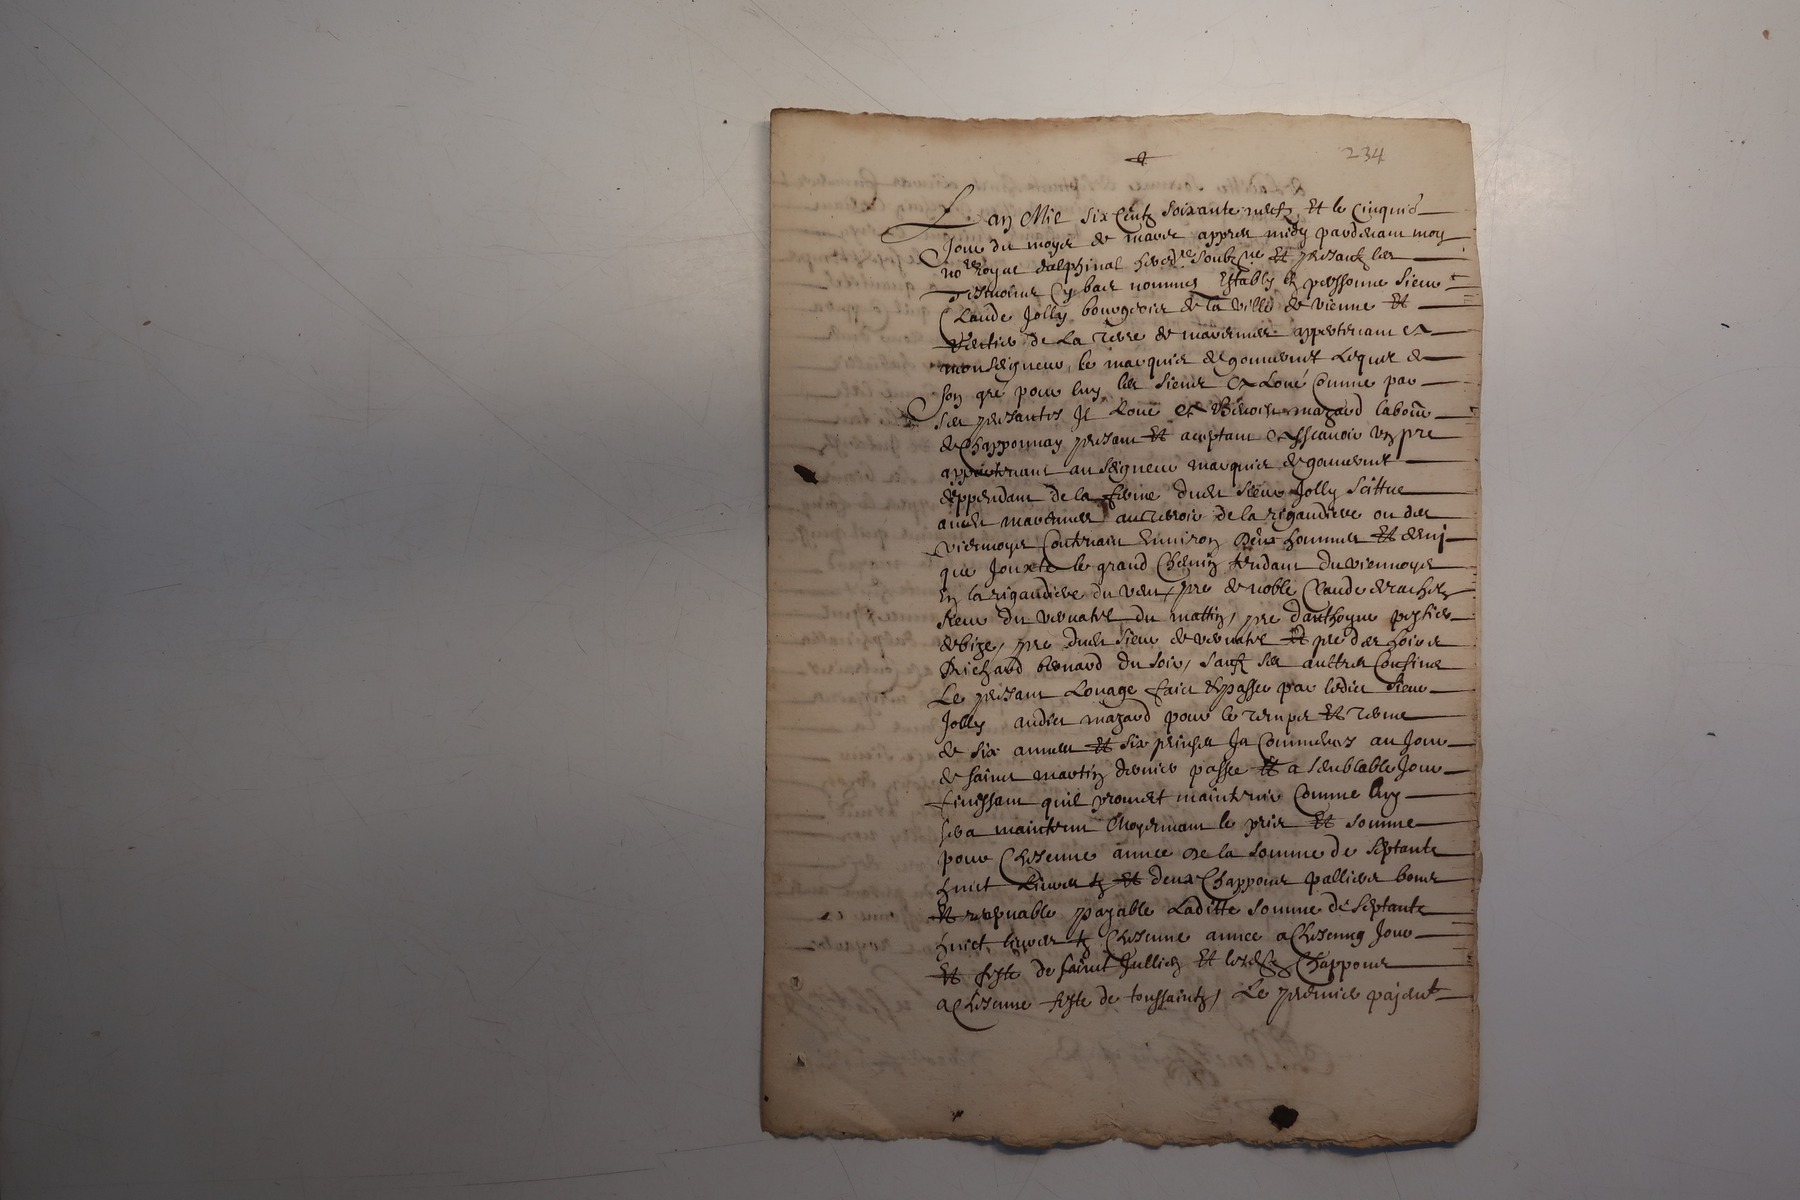 234
Lan Mil six Centz soixante neufz Et le Cinquie
Jour du moys de mars appres midy pardevant moy
nore royal dalphinal heredre soubzne Et presantz les
tesmoins Cy bas nommes Estably en personne Sieur
Claude Jolly bourgeois de la ville de vienne Et
de La terre de marennes appartenant a
monseigneur le marquis de gouvernet Lequel de
son gré pour luy les siens a Loué Comme par
ses presantes Il Loue a Benoist mazard labour
de Chapponnay presant Et aceptant a scavoir un pre
appartenant au seigneur marquis de gouvernet
deppendant de la ferme dudt sieur Jolly scittue
audt marennes au terroir de la rigaudiere ou des
viermoyes Contenant Environ deux hommes Et demj
que Jouxte le grand Chemin tendant du viennoys
En la rigaudiere du vent, pre de noble Claude
sieur du vernatel du mattin, pre danthoyne
de bize, pre dudt sieur de vernatel Et pre des hoirs
Richard bernard du soir, sauf ses aultres Confins
Le presant Louage faict & passe par ledict sieur
Jolly audict mazard pour le temps Et terme
de six annees Et six prinses Ja Commences au Jour
de saint martin dernier passe Et a semblable Jour
finissant quil promet maintenir Comme luy
sera maintenu Moyennant le pris Et somme
pour Chescune annee de la somme de septante
huict Livres tz Et deux Chappons palliers bons
Et recepvable payable Laditte somme de septante
huict livres tz Chescune annee a Chescung Jour
Et feste de saint Jullien Et lesdts Chappons
a Chescune feste de toussaintz, Le premier pajent